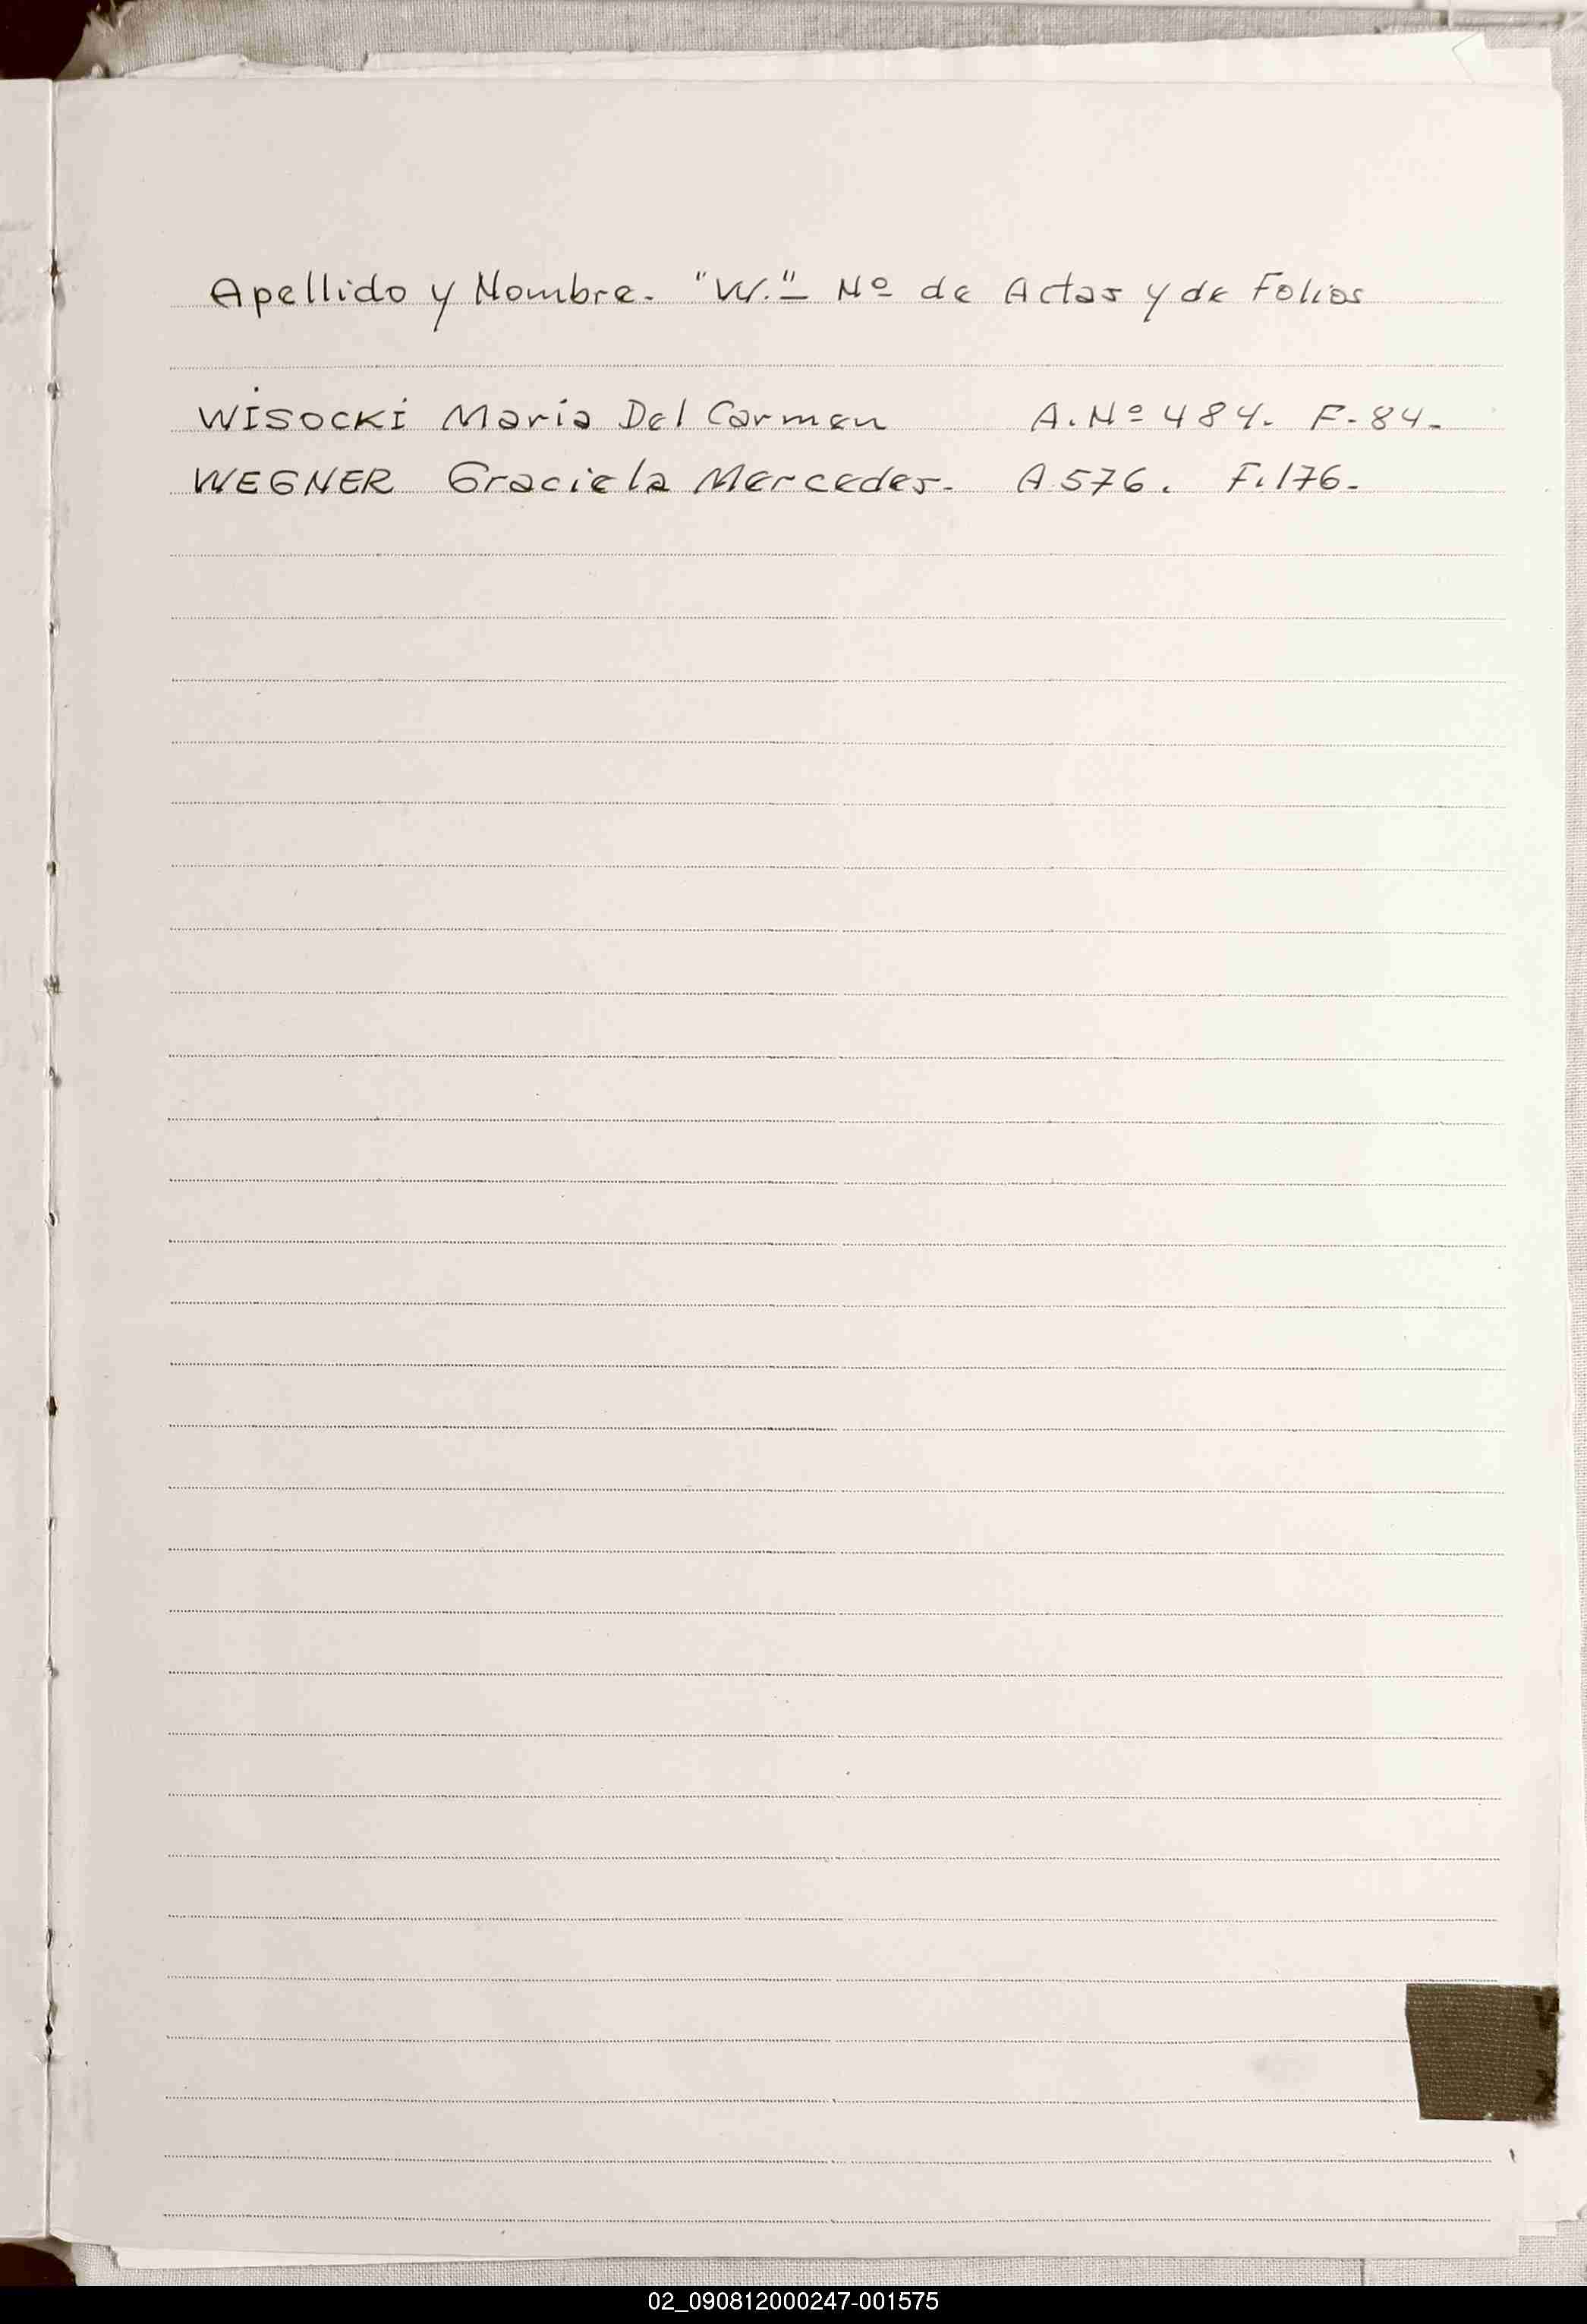 Apellido y Nombre. "W."- Nº de Actas y de Folios
WISOCKI María Del Carmen A. Nº 484. F. 84.
WEGNER Graciela Mercedes. A 576. F. 176.
02_090812000247-001575